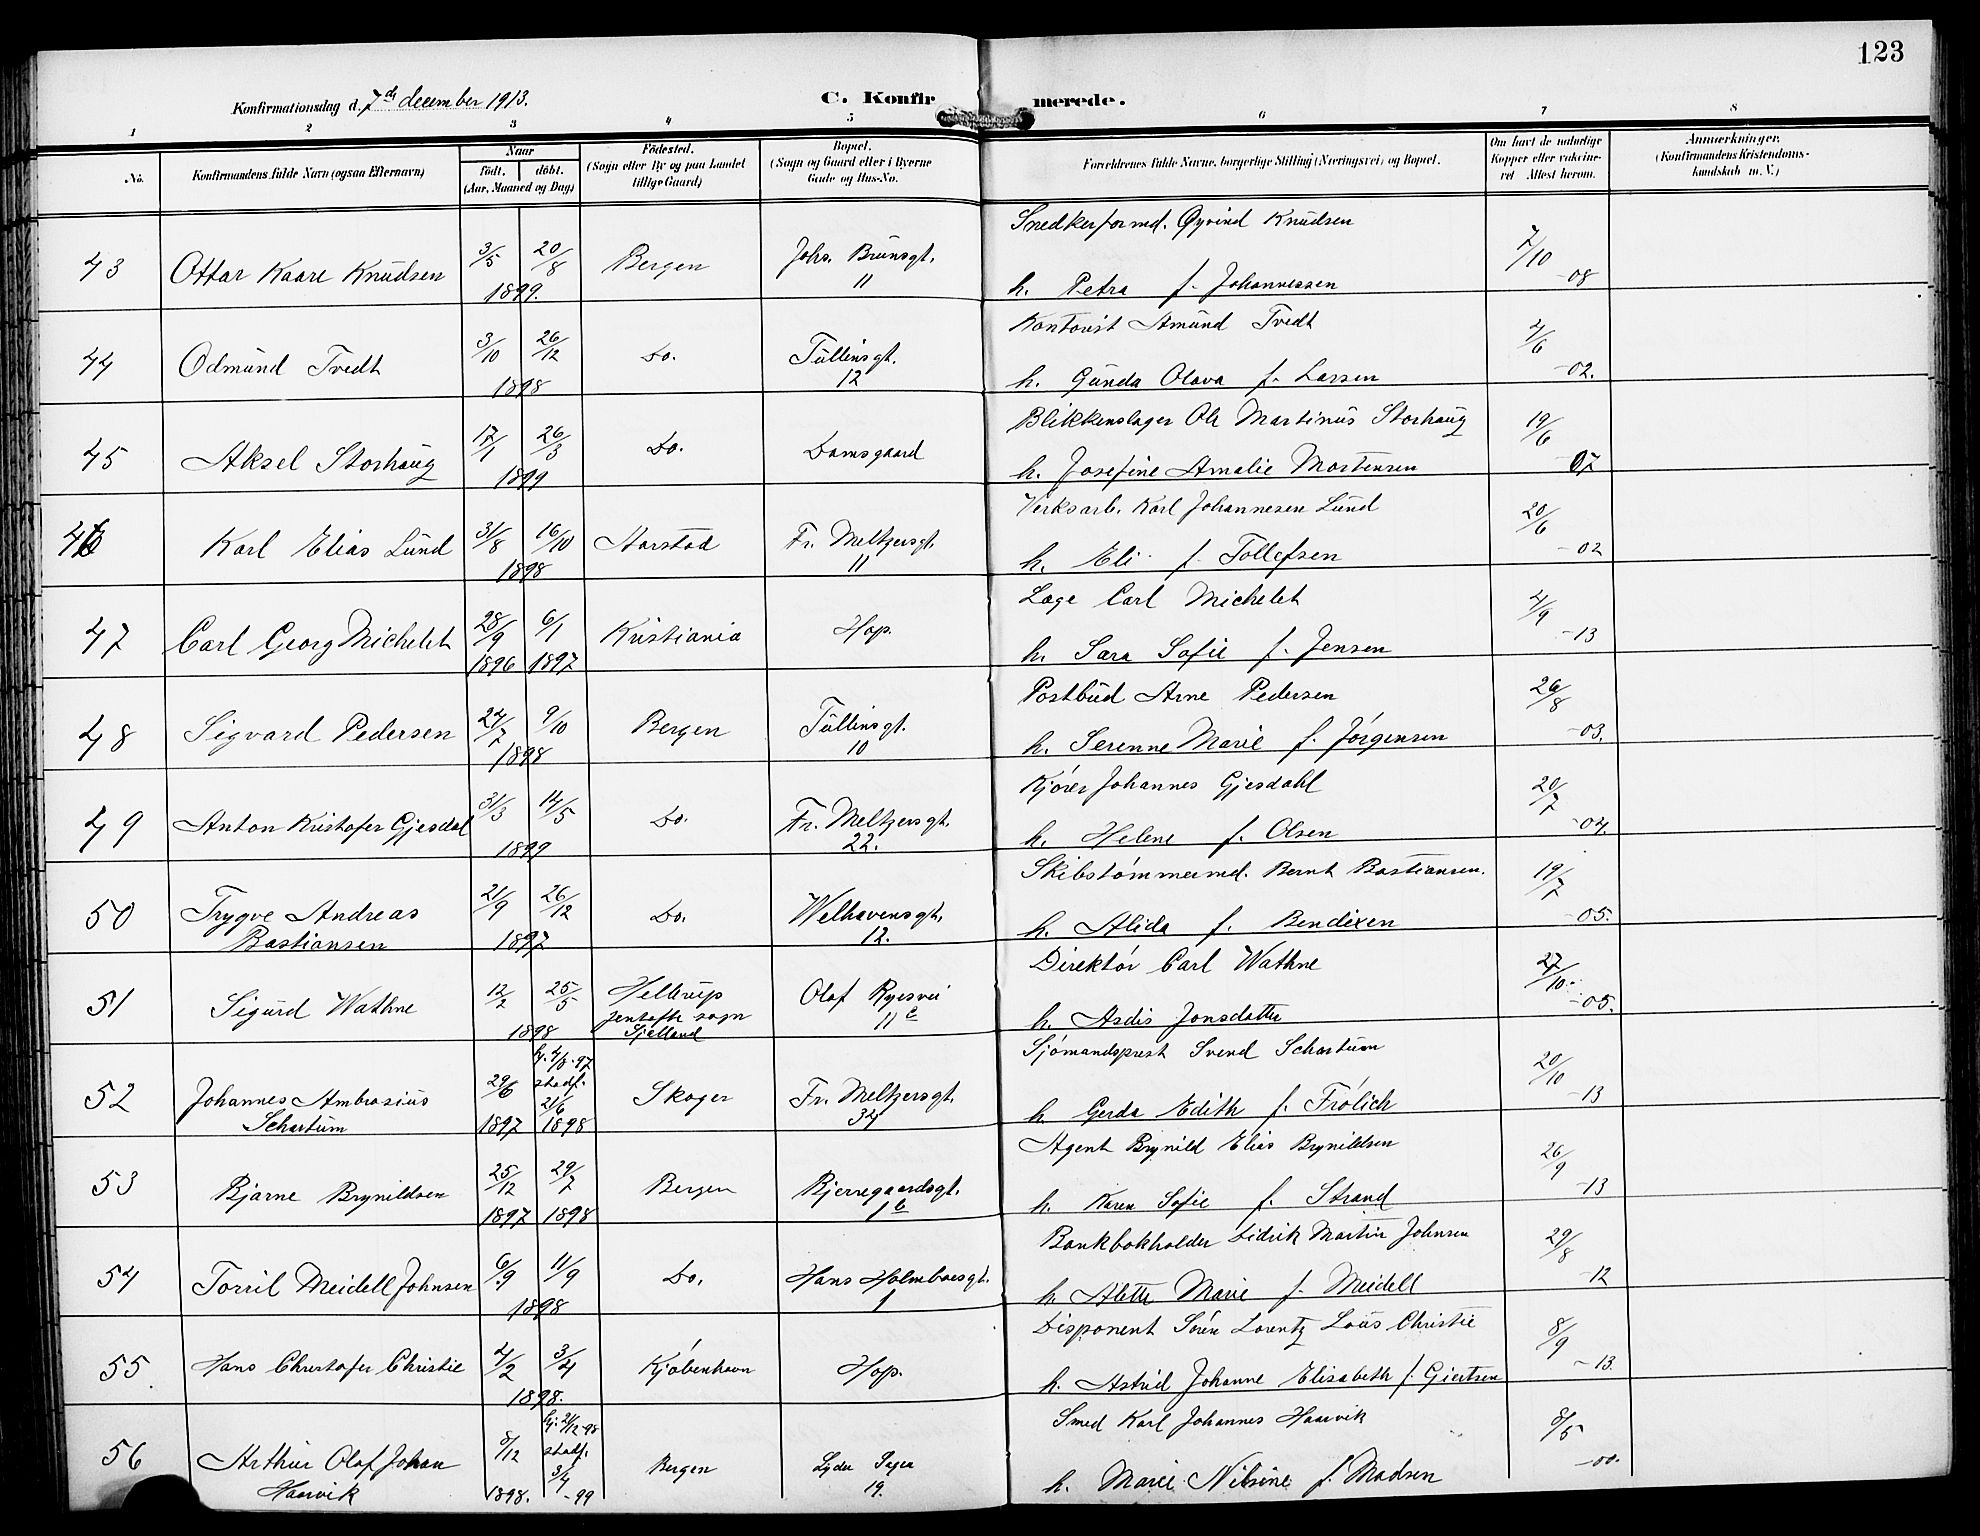 123
Konfirmationsdag d. 7de december 1913.
C. Konfirmerede.
1 2 3 4 5 6 7 8
No.
Konfirmandens fulde Navn (ogsaa Efternavn)
Naar
födt. döbt.
(Aar, Maaned og Dag)
Födested.
(Sogn eller By og paa Landet
tillige Gaard)
Bopæl.
(Sogn og Gaard eller i Byerne
Gade og Hus-No.
Forældrenes fulde Navne, borgerlige Stilling (Næringsvei) og Bopæl.
Om havt de naturlige
Kopper eller vakcine-
ret Attest herom.
Anmærkninger.
(Konfirmandens Kristendoms-
kundskab m. V.)
43 Ottar Kaare Knudsen 3/5 20/8 1899. Bergen Johs. Brunsgt. 11
Snedkerformd. Øyvind Knudsen
h. Petra f. Johannessen 7/10 -08
44 Odmund Tvedt 3/10 26/12 1898 Do. Tullinsgt. 12
Kontorist Amund Tvedt
h. Gunda Olava f. Larsen 4/6 -02.
45 Aksel Storhaug 17/1 26/3 1899 Do. Damsgaard
Blikkenslager Ole Martinus Storhaug
h. Josefine Amalie Mortensen 19/6 07
46 Karl Elias Lund 31/8 16/10 1898 Aarstad Fr. Meltzersgt. 11
Verksarb. Karl Johannesen Lund
h. Eli f. Tollefsen 20/6 -02
47 Carl Georg Michelet 28/9 1896 6/1 1897 Kristiania Hop.
Læge Carl Michelet
h. Sara Sofie f. Jensen 4/9 -13
48 Sigvard Pedersen 24/7 9/10 1898 Bergen Tullinsgt. 10
Postbud Arne Pedersen
h. Serenne Marie f. Jörgensen 26/8 -03.
49 Anton Kristofer Gjesdal 31/3 14/5 1899 Do. Fr. Meltzersgt. 22.
Kjörer Johannes Gjesdahl
h. Helene f. Olsen 20/7 -04.
50 Trygve Andreas
Bastiansen 21/9 26/12 1897 Do. Welhavensgt. 12.
Skibstömmermd. Bernt Bastiansen.
h. Alida f. Bendixen 19/7 -05.
51 Sigurd Wathne 12/2 25/5 1898 Hellerup
Jentofte sogn
Sjelland Olaf Ryesvei 11c
Direktör Carl Wathne
h. Asdis Jonsdatter 27/10 -05.
52 Johannes Ambrosius
Schartum 29/6 1897 hj. 4/8-97
stadf.
21/6 1898 Skoger Fr. Meltzersgt. 34
Sjömandsprest Svend Schartum
h. Gerda Edith f. Frölich 20/10 -13
53 Bjarne Brynildsen 25/12 1897 29/7 1898 Bergen Bjerregaardsgt. 1b
Agent Brynild Elias Brynildsen
h. Karen Sofie f. Strand 26/9 -13
54 Torril Meidell Johnsen 6/9 11/9 1898 Do. Hans Holmboesgt. 1
Bankbokholder Didrik Martin Johnsen
h. Alette Marie f. Meidell 29/8 -12
55 Hans Christofer Christie 4/2 3/4 1898. Kjøbenhavn Hop.
Disponent Sören Lorentz Louis Christie
h. Astrid Johanne Elisabeth f. Giertsen 8/9 -13.
56 Arthur Olaf Johan
Haarvik 8/12 1898. hj. 21/12-98
stadf.
3/4 -99 Bergen Lyder Sagen 19.
Smed Karl Johannes Haarvik
h. Marie Nilsine f. Madsen 8/5 -00.